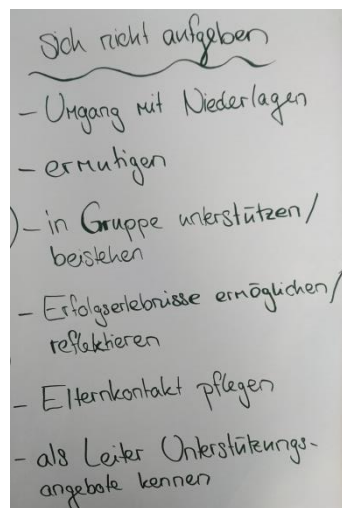 Sich nicht aufgeben
- Umgang mit Niederlagen
- ermutigen
- in Gruppe unterstützen/
beistehen
- Erfolgserlebnisse ermöglichen/
reflektieren
- Elternkontakt pflegen
- als Leiter Unterstützungs-
angebote kennen